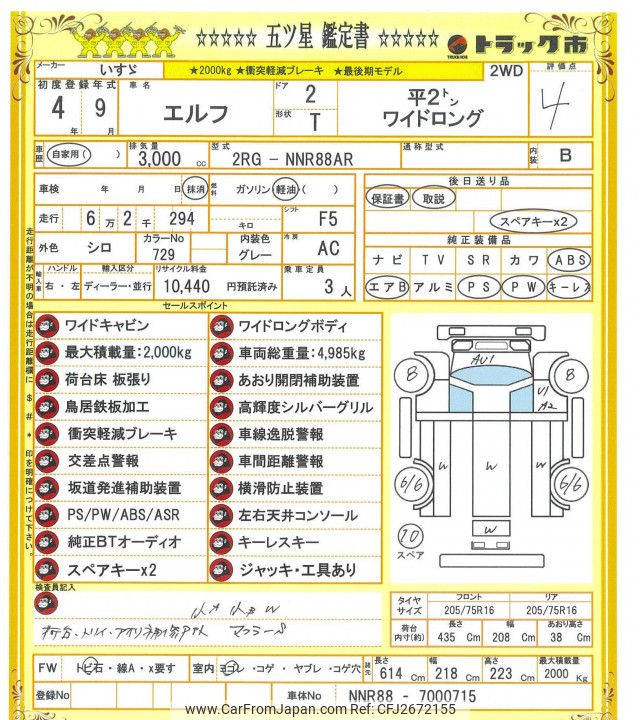 ☆☆☆☆☆ 五ツ星 鑑定書 ☆☆☆☆☆ トラック市
メーカー いすゞ ★2000kg ★衝突軽減ブレーキ ★最後期モデル 2WD 評価点
初度登録年式 車名 ドア 2 平2トン 4
4年 9月 エルフ 形状 T ワイドロング
車歴 自家用( ) 排気量 3,000 cc 型式 2RG - NNR88AR 通称型式 内装 B
車検 年 月 日 抹消 燃料 ガソリン 軽油 ( ) 後日送り品
走行 6万2千294 キロ シフト F5 保証書 取説
スペアキーx2
外色 シロ カラーNo 729 内装色 グレー 冷房 AC 純正装備品
ナビ TV SR カワ ABS
輸入車 ハンドル 右・左 輸入区分 ディーラー・並行 リサイクル料金 10,440 円預託済み 乗車定員 3人 エアB アルミ PS PW キーレス
セールスポイント
ワイドキャビン ワイドロングボディ
最大積載量:2,000kg 車両総重量:4,985kg
荷台床 板張り あおり開閉補助装置
鳥居鉄板加工 高輝度シルバーグリル
衝突軽減ブレーキ 車線逸脱警報
交差点警報 車間距離警報
坂道発進補助装置 横滑防止装置
PS/PW/ABS/ASR 左右天井コンソール
純正BTオーディオ キーレスキー
スペアキーx2 ジャッキ・工具あり
走行距離が不明の場合は走行距離欄に $ # * 印を明確につけて下さい。
AU1
8 8
U1
A2
W W W
6/6 6/6
W
10
スペア
検査員記入
タイヤサイズ フロント 205/75R16 リア 205/75R16
荷台内寸(約) 長さ 435 Cm 幅 208 Cm あおり高さ 38 Cm
FW トビ石・線A・x要す 室内 ヨゴレ・コゲ・ヤブレ・コゲ穴 諸元 長さ 614 Cm 幅 218 Cm 高さ 223 Cm 最大積載量 2000 Kg
登録No 車体No NNR88 - 7000715
www.CarFromJapan.com Ref: CFJ2672155